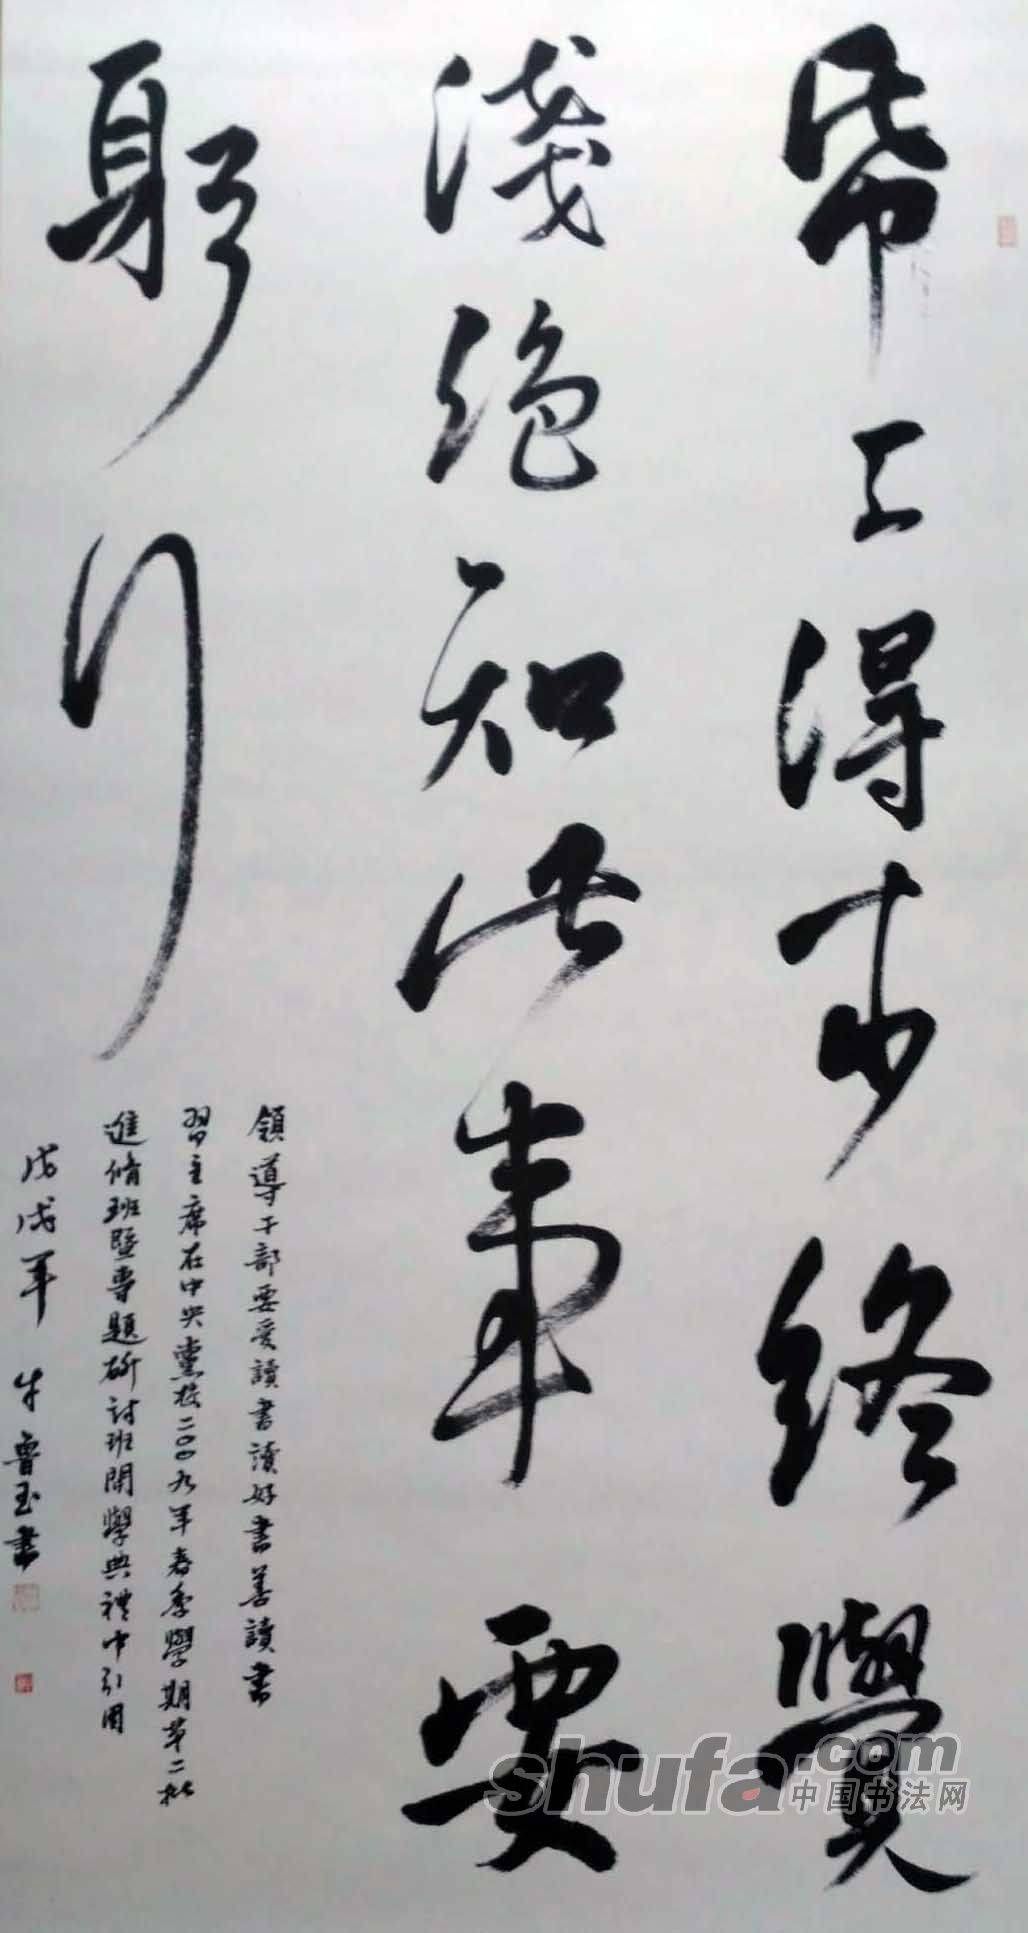 帋上得来終覺
淺絶知此事要
躬行
領導干部要愛讀書讀好書善讀書
習主席在中央黨校二〇〇九年春季學期第二批
進修班暨專題研討班開學典禮中引用
戊戌年 牛魯玉書
shufa.com
中国书法网